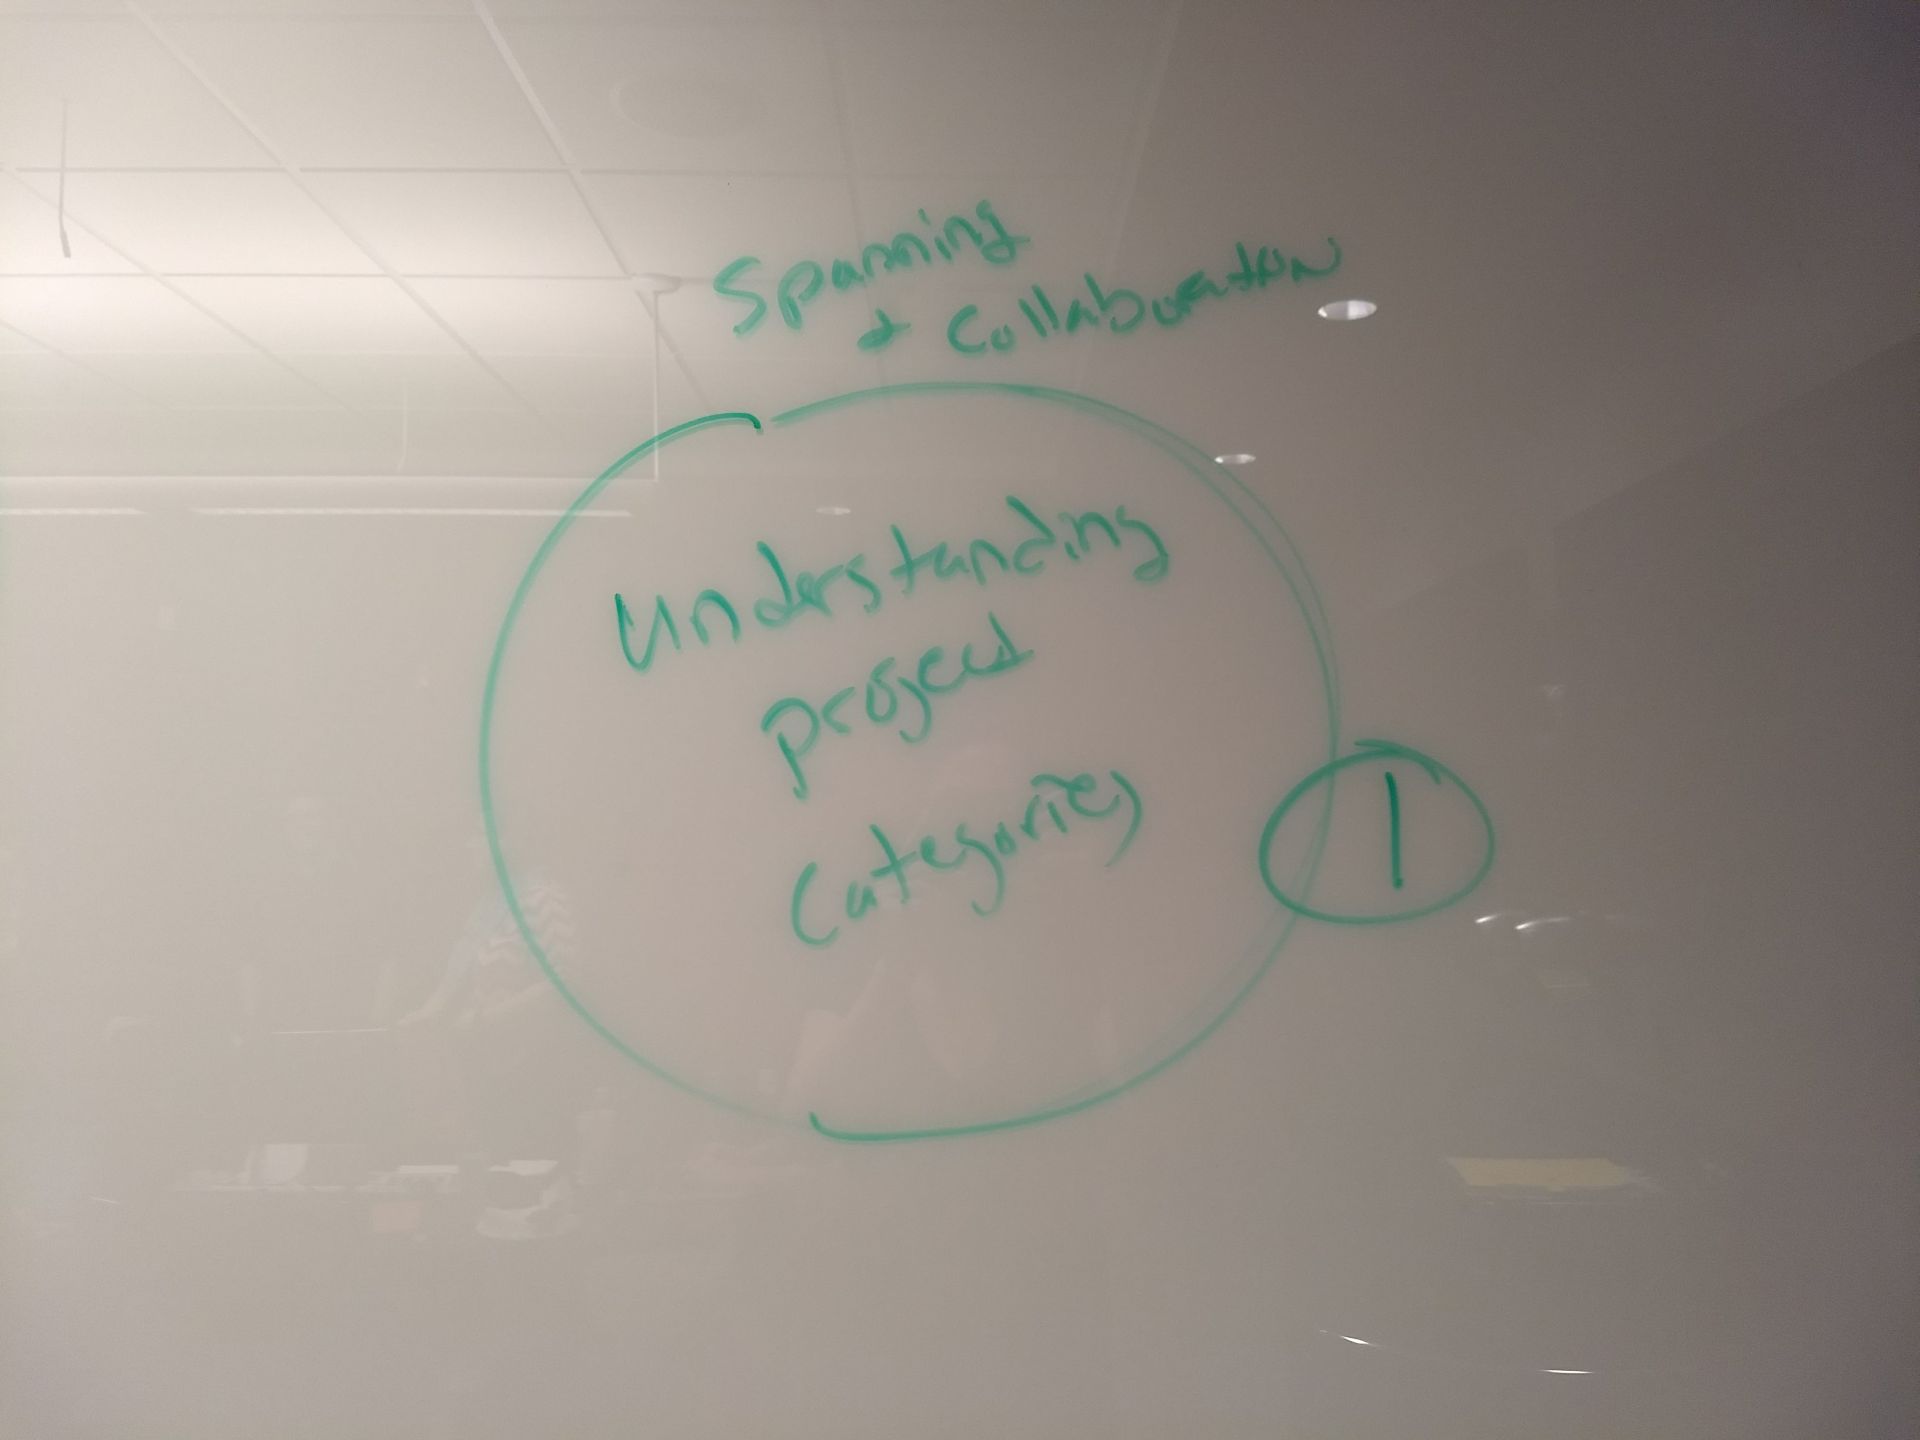 Spanning
+ Collaboration
Understanding
project
Categories
1